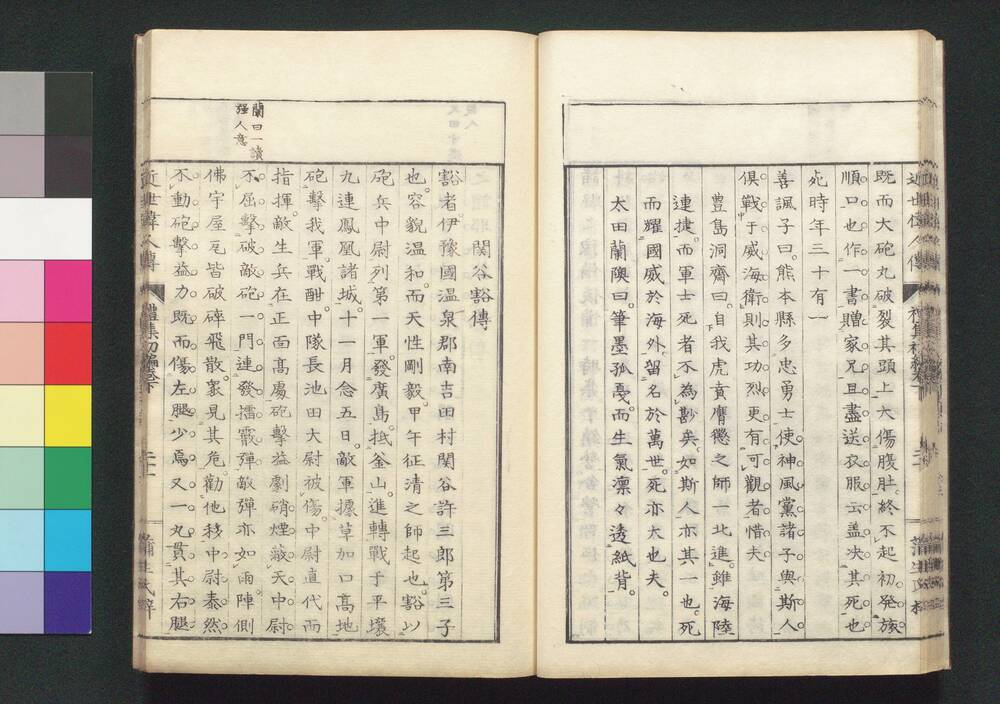 既而大砲丸破裂其頭上大傷腹肚終不起初発旅
順口也作一書贈家兄且盡送衣服云盖决其死也
死時年三十有一
善諷子曰熊本縣多忠勇士使神風黨諸子與斯人
倶戰于威海衛則其功烈更有可觀者惜夫
豊島洞齋曰自我虎賁膺懲之師一北進雖海陸
連捷而軍士死者不為尠矣如斯人亦其一也死
而耀國威於海外留名於萬世死亦大也夫
太田蘭陵曰筆墨孤戞而生氣凛々透紙背
蘭曰一讀
强人意
関谷豁傳
豁者伊豫國温泉郡南吉田村関谷許三郎第三子
也容貌温和而天性剛毅甲午征清之師起也豁以
砲兵中尉列第一軍發廣島抵釜山進轉戰于平壤
九連鳳凰諸城十一月念五日敵軍據草加口高地
砲擊我軍戰酣中隊長池田大尉被傷中尉直代而
指揮敵生兵在正面高處砲擊益劇硝煙蔽天中尉
不屈擊破敵砲一門連發擂霰彈敵彈亦如雨陣側
佛宇屋瓦皆破碎飛散衆見其危勸他移中尉泰然
不動砲擊益力既而傷左腿少焉又一丸貫其右腿
近世偉人傳
禮集初編卷下